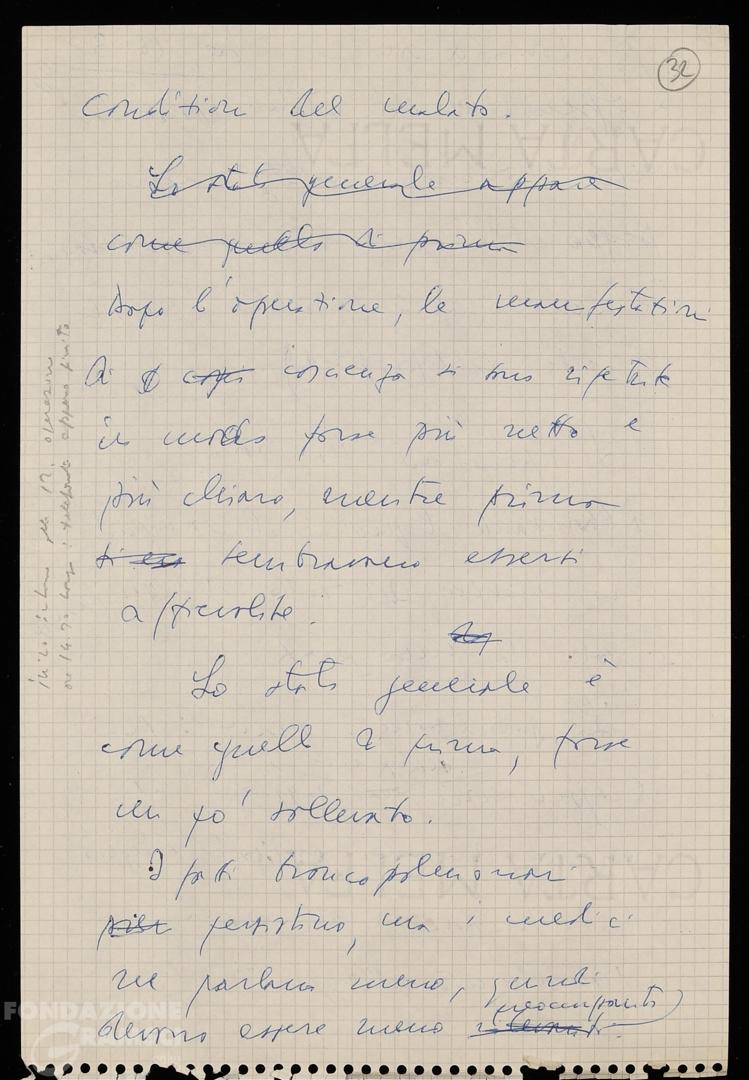 32
Condizioni del malato.
Lo stato generale appare
come quello di prima
Dopo l'operazione, le manifestazioni
di coscienza si sono ripetute
in modo forse più netto e
più chiaro, mentre prima
sembravano essersi
affievolite.
Lo stato generale è
come quello di prima, forse
un po' sollevato.
I fatti broncopolmonari
persistono, ma i medici
ne parlano meno, quindi
devono essere meno preoccupanti
FONDAZIONE